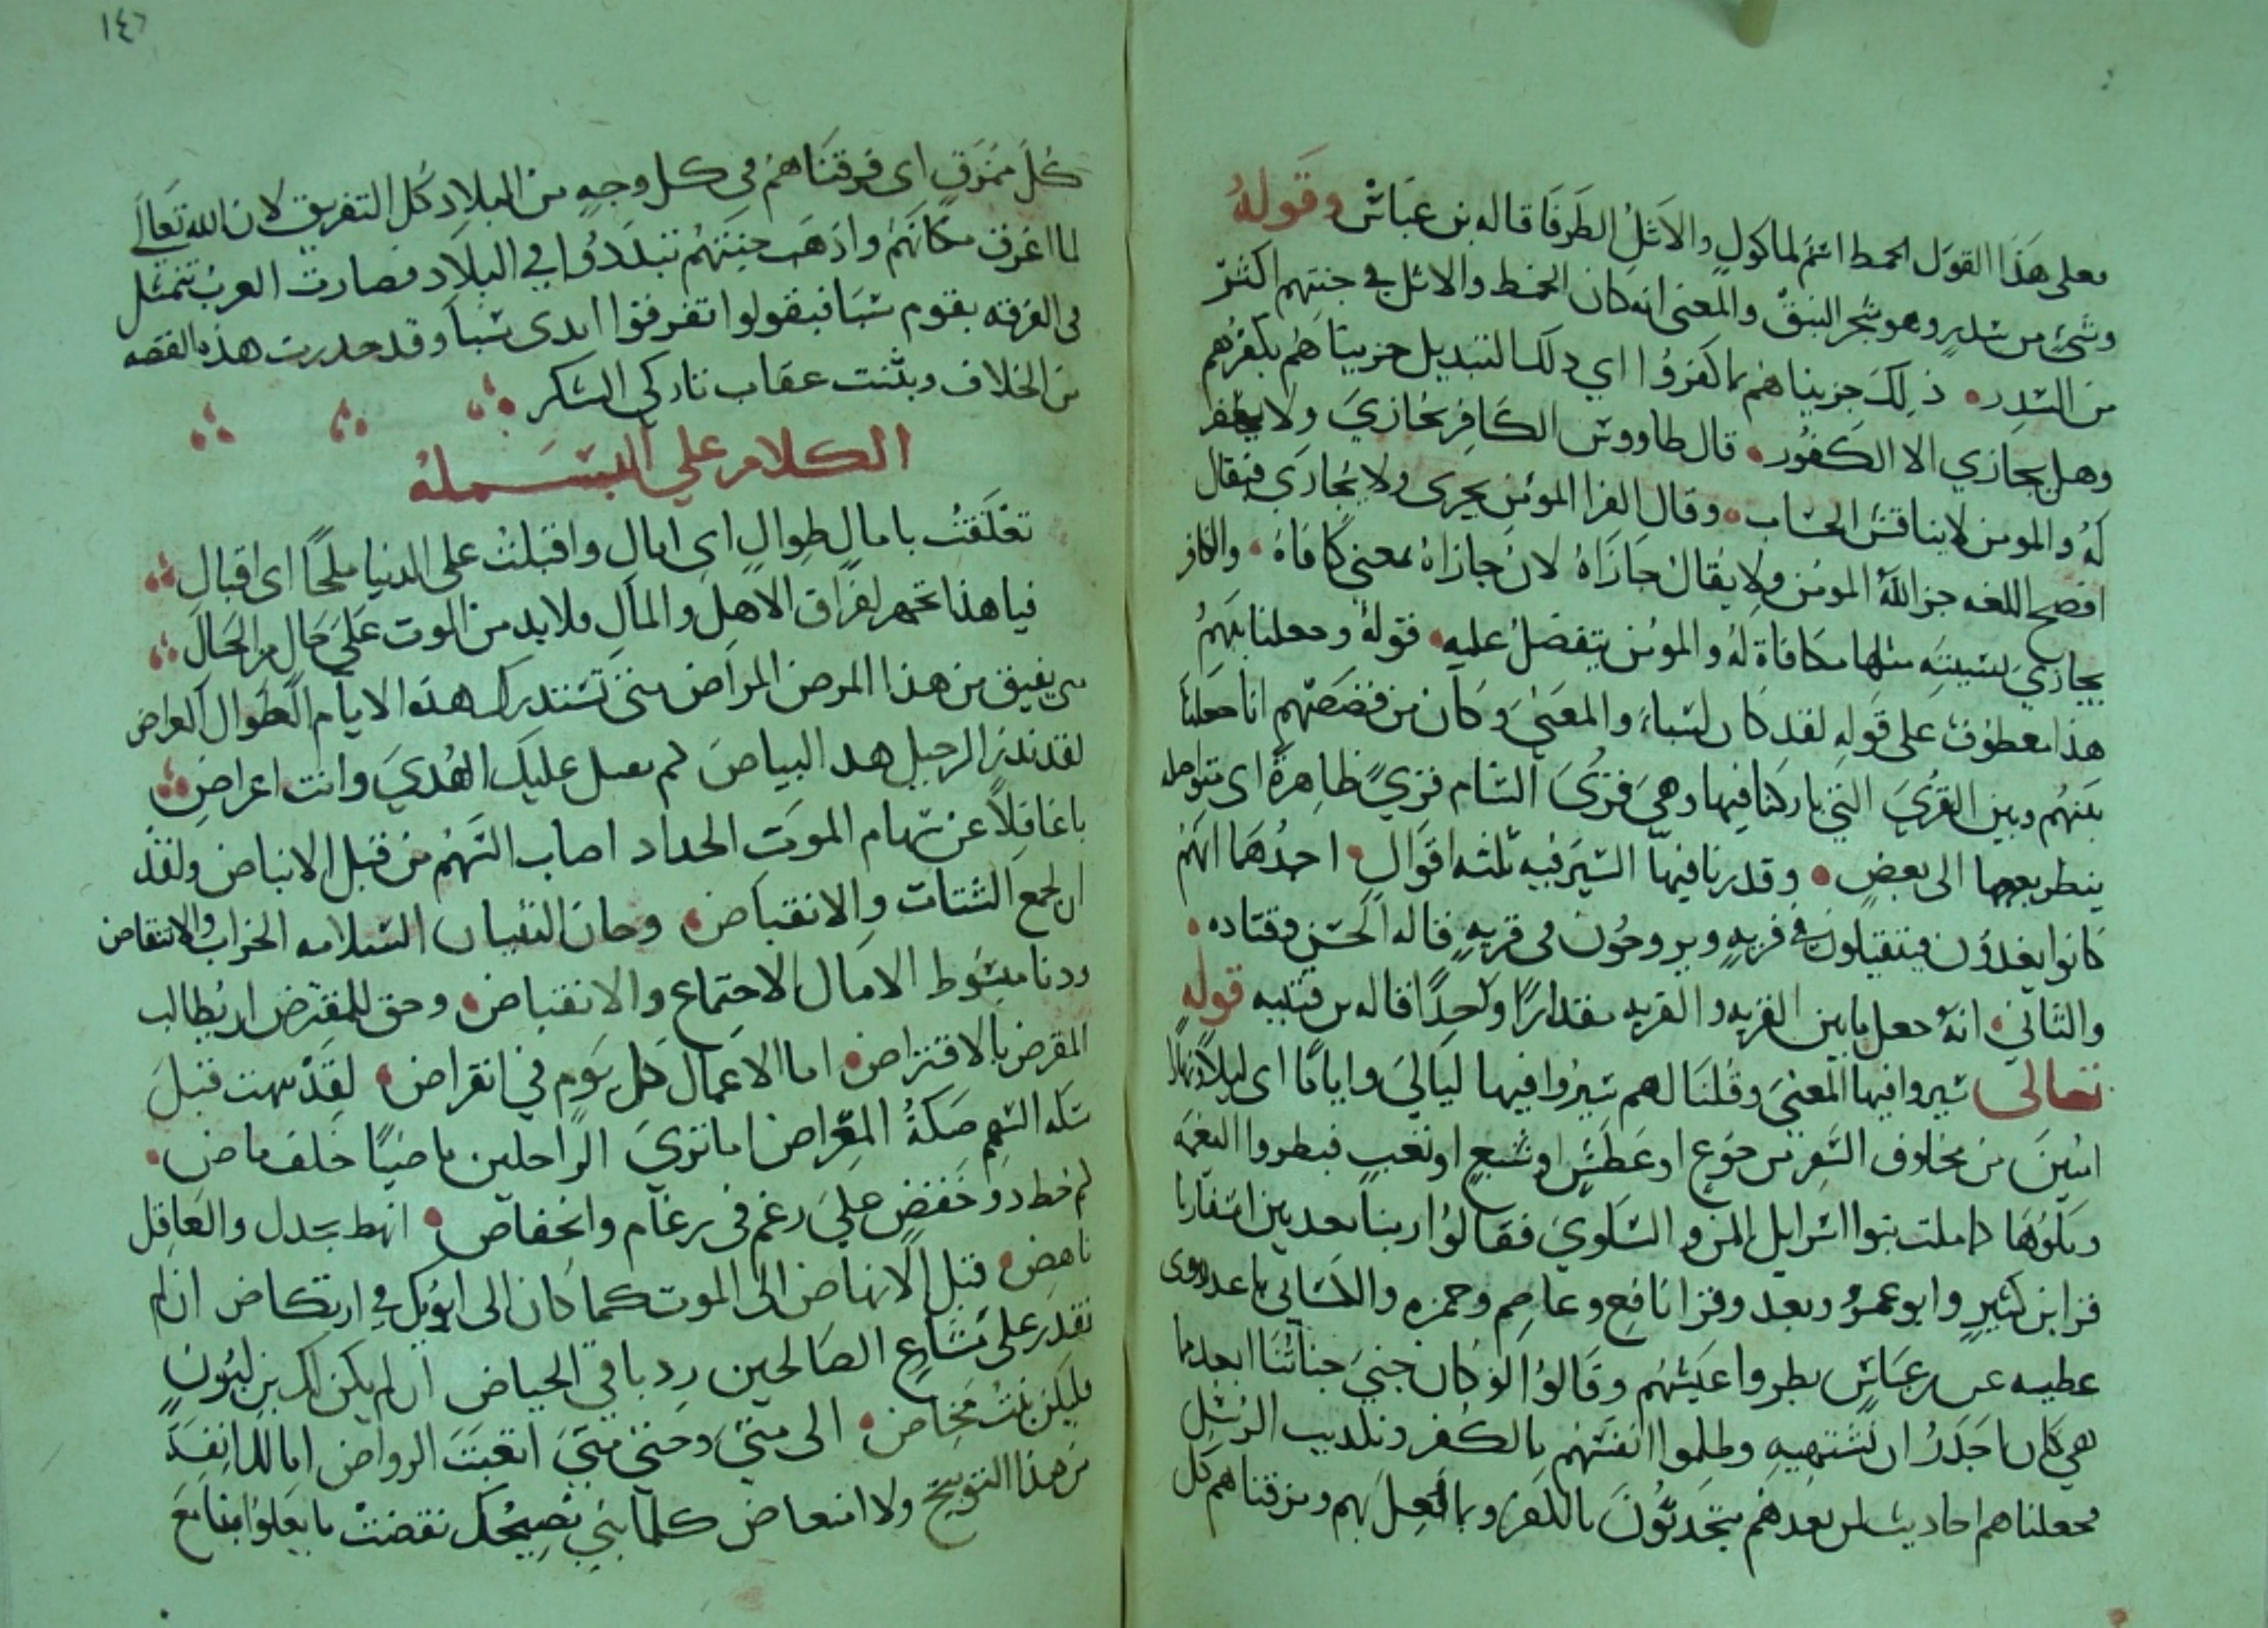 فعلى هذا القول الخمط اسم لماكول والاثل الطرفا قاله بن عباس وقوله
وشئ من سدر وهو شجر النبق والمعنى انه كان الخمط والاثل في جنتهم اكثر
من السدر ذلك جزيناهم بما كفروا اي ذلك التبديل جزيناهم بكفرهم
وهل يجازي الا الكفور قال طاووس الكافر يجازي ولا يغفر
له والمومن لا يناقش الحساب وقال الفرا المومن يجزى ولا يجازي فيقال
افصح اللغه جزا الله المومن ولا يقال جازاه لان جازاه بمعنى كافاه والكافر
يجازي بسيئته مثلها مكافاة له والمومن يتفضل عليه قوله وجعلنا بينهم
هذا معطوف على قوله لقد كان لسباء والمعنى وكان من قصصهم انا جعلنا
بينهم وبين القري التي باركنا فيها وهي قري الشام قري ظاهرة اي متواصله
ينظر بعضها الى بعض وقدرنا فيها السير فيه ثلثه اقوال احدها انهم
كانوا يغدون فيقيلون في قريه ويروحون في قريه قاله الحسن وقتاده
والثاني انه جعل ما بين القريه والقريه مقدارا واحدا قاله بن قتيبه قوله
تعالى سيروا فيها المعنى وقلنا لهم سيروا فيها ليالي واياما اي ليلا ونهارا
امنين من مخاوف السفر من جوع او عطش او سبع او تعب فبطروا النعمه
وملوها كما ملت بنوا اسرايل المن والسلوي فقالوا ربنا بعد بين اسفارنا
قرا ابن كثير وابو عمرو وبعد وقرا نافع وعاصم وحمزه والكسائي باعد وروى
عطيه عن بن عباس بطروا عيشهم وقالوا لو كان جني جناتنا ابعد مما
هي كان اجدر ان نشتهيه وظلموا انفسهم بالكفر وتكذيب الرسل
فجعلناهم احاديث لمن بعدهم يتحدثون بالكفر وبما فعل بهم ومزقناهم كل
١٤٦
كل ممزق اي فرقناهم في كل وجه من البلاد كل التفريق لان الله تعالى
لما اغرق مكانهم واذهب جنتهم تبددوا في البلاد فصارت العرب تتمثل
في الفرقه بقوم سبا فيقولوا تفرقوا ايدى سبا وقد حذرت هذه القصه
من الخلاف وبينت عقاب تاركي الشكر
الكلام علي البسمله
تعلقت بامال طوال اي امال واقبلت على الدنيا ملحا اي اقبال
فيا هذا تجهز لفراق الاهل والمال فلا بد من الموت على حال من الحال
متى يفيق من هذا المرض المراض متى تستدرك هذه الايام الطوال العراض
لقد نذر الرحيل هذا البياض لم يقبل عليك الهدي وانت اعراض
يا غافلا عن سهام الموت الحداد اصاب السهم من قبل الانباض ولقد
ان لجمع الشتات والانقباض وحان لبنيان السلامه الخراب والانتقاض
ودنا مبسوط الامال الاجتماع والانقباض وحق للمقرض ان يطالب
المقرض بالاقتراض اما الاعمال كل يوم في انقراض لقد نبهت قبل
شكه السهم صكة المقراض اما تري الراحلين ماضيا خلف ماض
كم حط ذو خفض علي رغم في رغام وانخفاض انهط بجدل والعاقل
ناهض قبل الانهاض الى الموت كما كان الى ابويك في ارتكاض ان لم
تقدر على مشارع الصالحين رد باقي الحياض ان لم يكن لك بن لبون
فليكن بنت مخاض الى متى وحتى متى اتعبت الرواض اما لك انفه
من هذا التوبيخ ولا امتعاض كلما بني نصيحك نقضت بافعال ومع